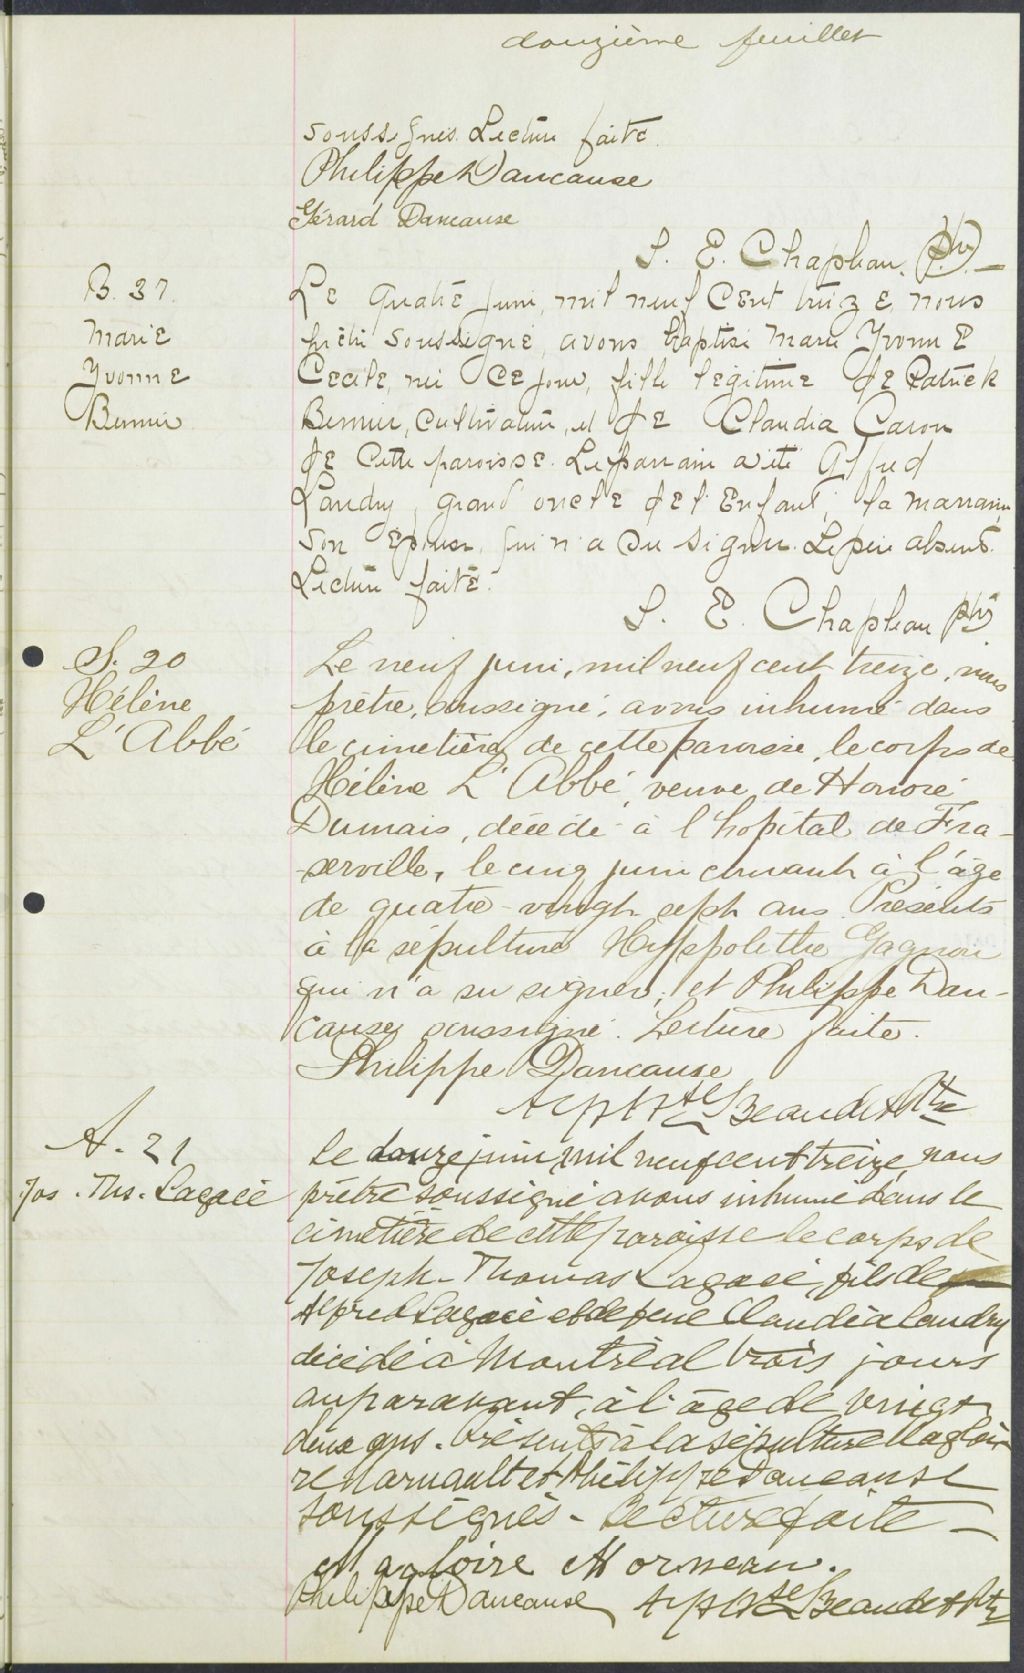 douzième feuillet
soussignés. Lecture faite.
Philippe Dancause
Gérard Dancause
S. E. Chapleau, Ptr.
B. 37.
Marie
Yvonne
Bernier
Le quatre juin, mil neuf cent treize, nous
prêtre soussigné, avons baptisé Marie Yvonne
Cecile, née ce jour, fille légitime de Patrick
Bernier, cultivateur, et de Claudia Caron
de cette paroisse. Le parrain a été Alfred
Landry, grand oncle de l'enfant; la marraine
son épouse, qui n'a su signer. Le père absent.
Lecture faite.
S. E. Chapleau ptr
S. 20
Hélène
L'Abbé
Le neuf juin, mil neuf cent treize, nous
prêtre, soussigné, avons inhumé dans
le cimetière de cette paroisse, le corps de
Hélène L'Abbé, veuve de Honoré
Dumais, décédé à l'hopital de Fra-
serville, le cinq juin courant à l'âge
de quatre-vingt sept ans. Présents
à la sépulture Hyppolithe Gagnon
qui n'a su signer, et Philippe Dan-
cause, soussigné. Lecture faite.
Philippe Dancause
Beaudet Ptre
S. 21
Jos. Ths. Lagacé
Le douze juin mil neuf cent treize, nous
prêtre soussigné avons inhumé dans le
cimetière de cette paroisse le corps de
Joseph-Thomas Lagacé, fils de
Alfred Lagacé et de feue Claudia Landry
décédé à Montréal trois jours
auparavant, à l'âge de vingt
deux ans. Présents à la sépulture Magloi-
re Harnault et Philippe Dancause
soussignés - Lecture faite -
Magloire Morneau.
Philippe Dancause Beaudet Ptre